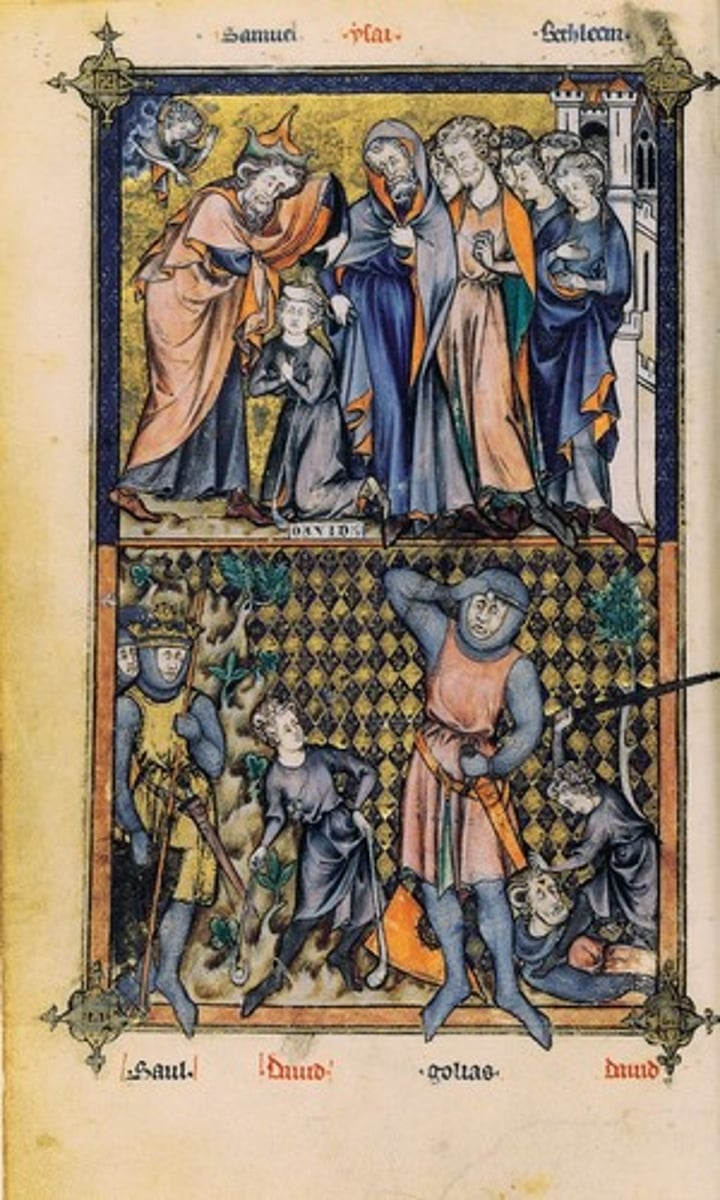 ·Samuel ·ysai· ·Bethleem·
DAVID
·Saul· ·Dauid· ·golias· dauid